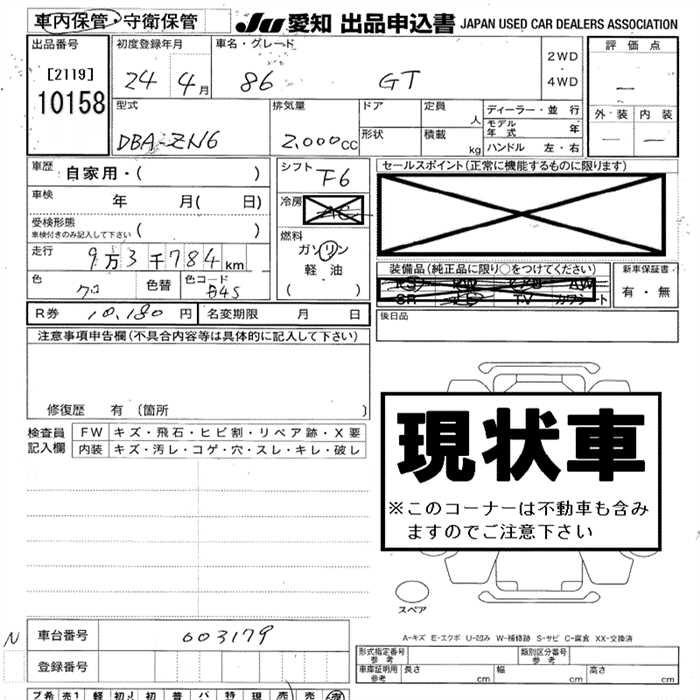 車内保管・守衛保管
JU 愛知 出品申込書 JAPAN USED CAR DEALERS ASSOCIATION
出品番号 初度登録年月 車名・グレード 2WD・4WD 評価点
[2119] 24年 4月 86 GT
10158
外装 内装
型式 排気量 ドア 定員 人 ディーラー・並行
DBA-ZN6 2,000cc 形状 積載 kg モデル年式 年
ハンドル 左・右
車歴 自家用・( ) シフト F6 セールスポイント(正常に機能するものに限ります)
車検 年 月( 日) 冷房 AC
受検形態
車検付きのみ記入して下さい ( ) 燃料
走行 9万3千784km ガソリン
軽油
( )
色 クロ 色替 色コード D4S 装備品(純正品に限り○をつけてください) 新車保証書
SR TV カワシート 有・無
R券 10,180円 名変期限 月 日 後日品
注意事項申告欄(不具合内容等は具体的に記入して下さい)
修復歴 有(箇所 )
現状車
※このコーナーは不動車も含み
ますのでご注意下さい
検査員記入欄 FW キズ・飛石・ヒビ割・リペア跡・X要
内装 キズ・汚レ・コゲ・穴・スレ・キレ・破レ
スペア
A-キズ E-エクボ U-凹み W-補修跡 S-サビ C-腐食 XX-交換済
N 車台番号 003179
登録番号
形式指定番号 参考 類別区分番号 参考
車庫証明用 参考 長さ cm 幅 cm 高さ cm